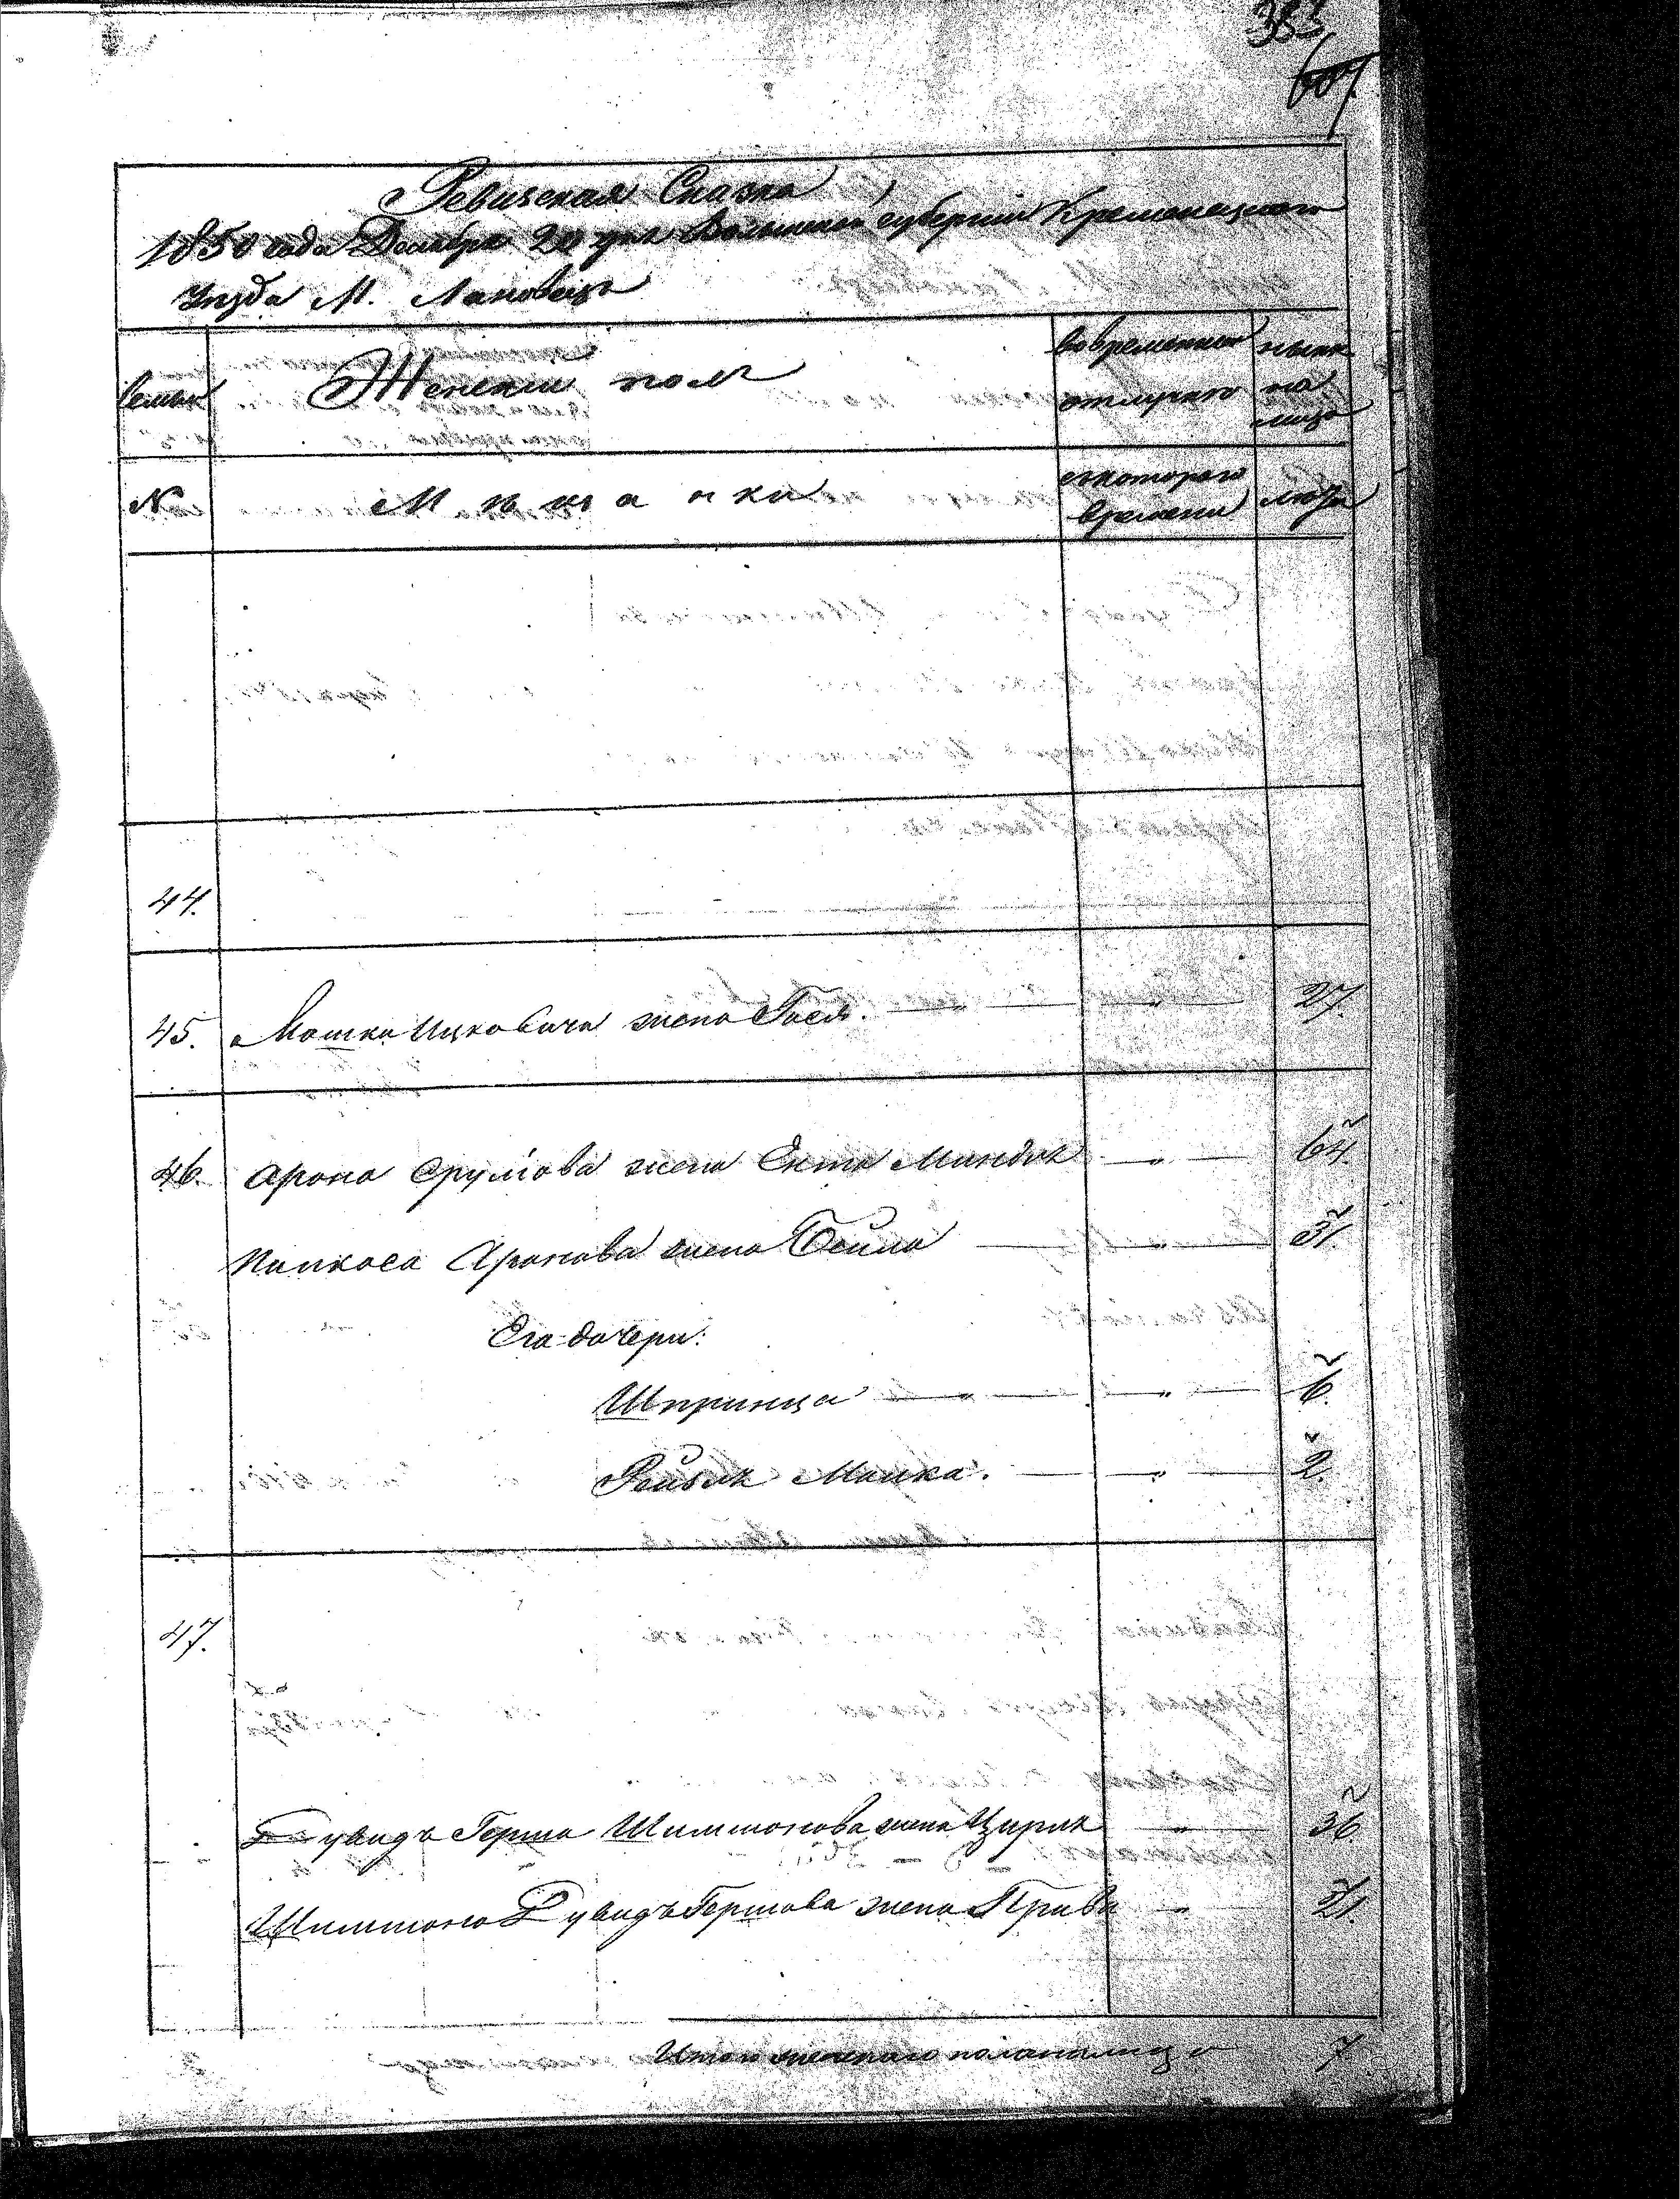 383
607
Ревизская Сказка
1850 года Декабря 20 дня Волынской губернии Кременецкого
Уезда М. Лановец
Семьи
Женский пол
во временной отлучке
ныне на лицо
№
Мещанки
с которого времени
лета
44.
45. Мошка Ицковича жена Гося. 27.
46. Арона Срулiова жена Ента Миндля 64.
Пинкаса Аронова жена Бейла 31.
Его дочери:
Шпринца 6.
Рейзя Малка. 2.
47.
Дувидъ Герша Шиммонова жена Цирля 36
Шиммона Дувидъ Гершова жена Прива 21.
Итого женского пола на лицо 7